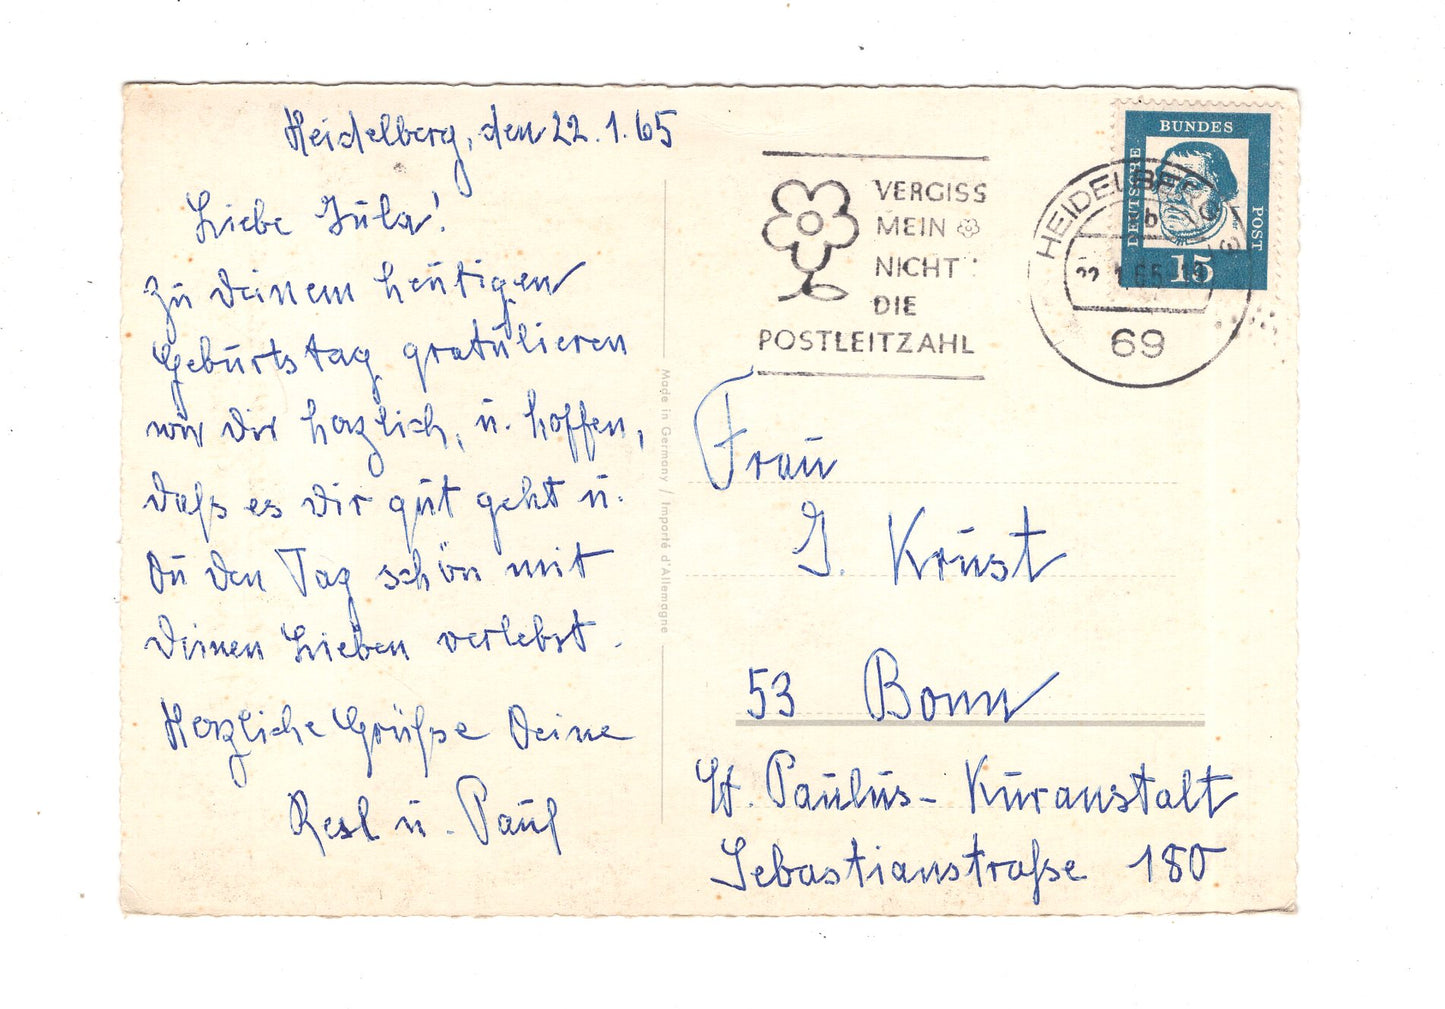 Heidelberg, den 22.1.65
Liebe Jula!
Zu Deinem heutigen
Geburtstag gratulieren
wir Dir herzlich, u. hoffen,
daß es Dir gut geht u.
Du den Tag schön mit
Deinen Lieben verlebst.
Herzliche Grüße Deine
Resl u. Paul
Made in Germany / Importé d'Allemagne
VERGISS
MEIN
NICHT
DIE
POSTLEITZAHL
HEIDELBERG
b
22.1.65
69
DEUTSCHE
BUNDES
POST
15
Frau
J. Krust
53 Bonn
St. Paulus- Kuranstalt
Sebastianstraße 180